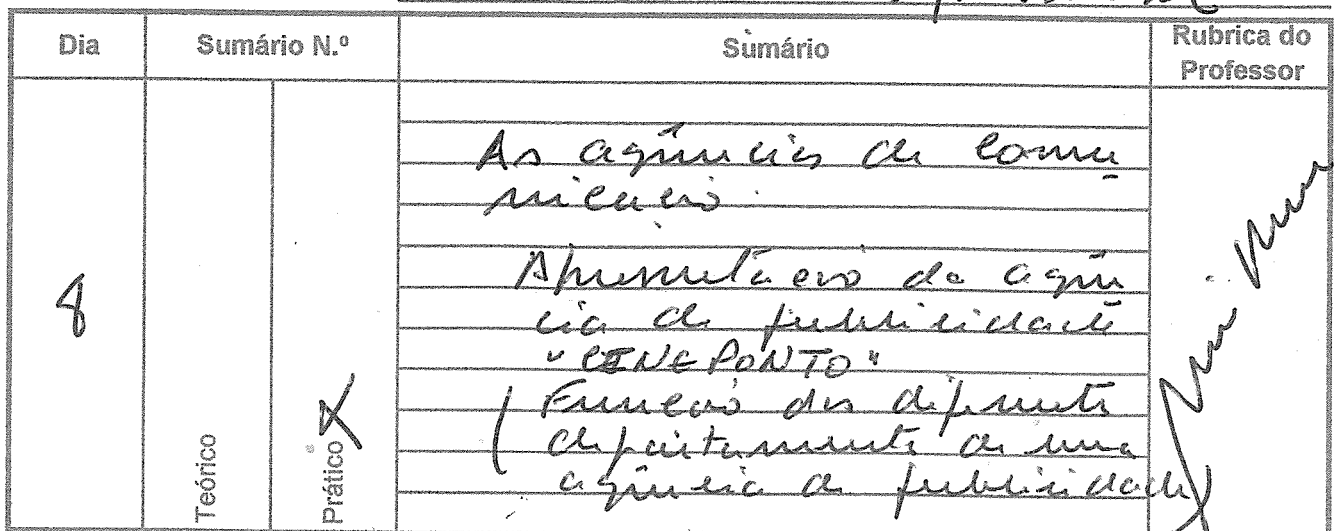 Dia Sumário N.º Sumário Rubrica do Professor
8
Teórico
Prático X
As agências de comu
nicação.
Apresentação da agên
cia de publicidade
"CENEPONTO"
(Função dos diferentes
departamentos de uma
agência de publicidade)